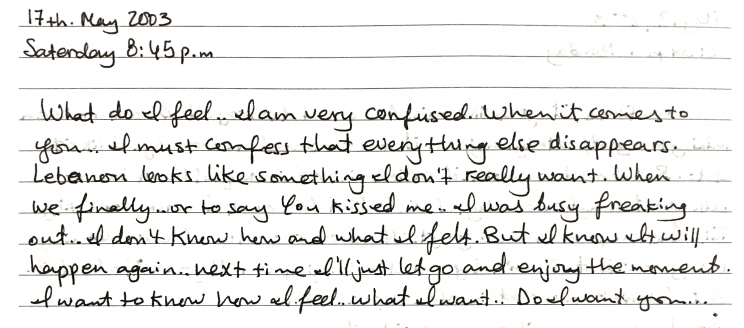 17th. May 2003
Saterday 8:45 p.m
What do I feel.. I am very confused. When it comes to
you.. I must confess that everything else disappears.
Lebanon looks like something I don't really want. When
we finally.. or to say You kissed me.. I was busy freaking
out.. I don't know how and what I felt. But I know It will
happen again.. next time I'll just let go and enjoy the moment.
I want to know how I feel.. what I want.. Do I want you...